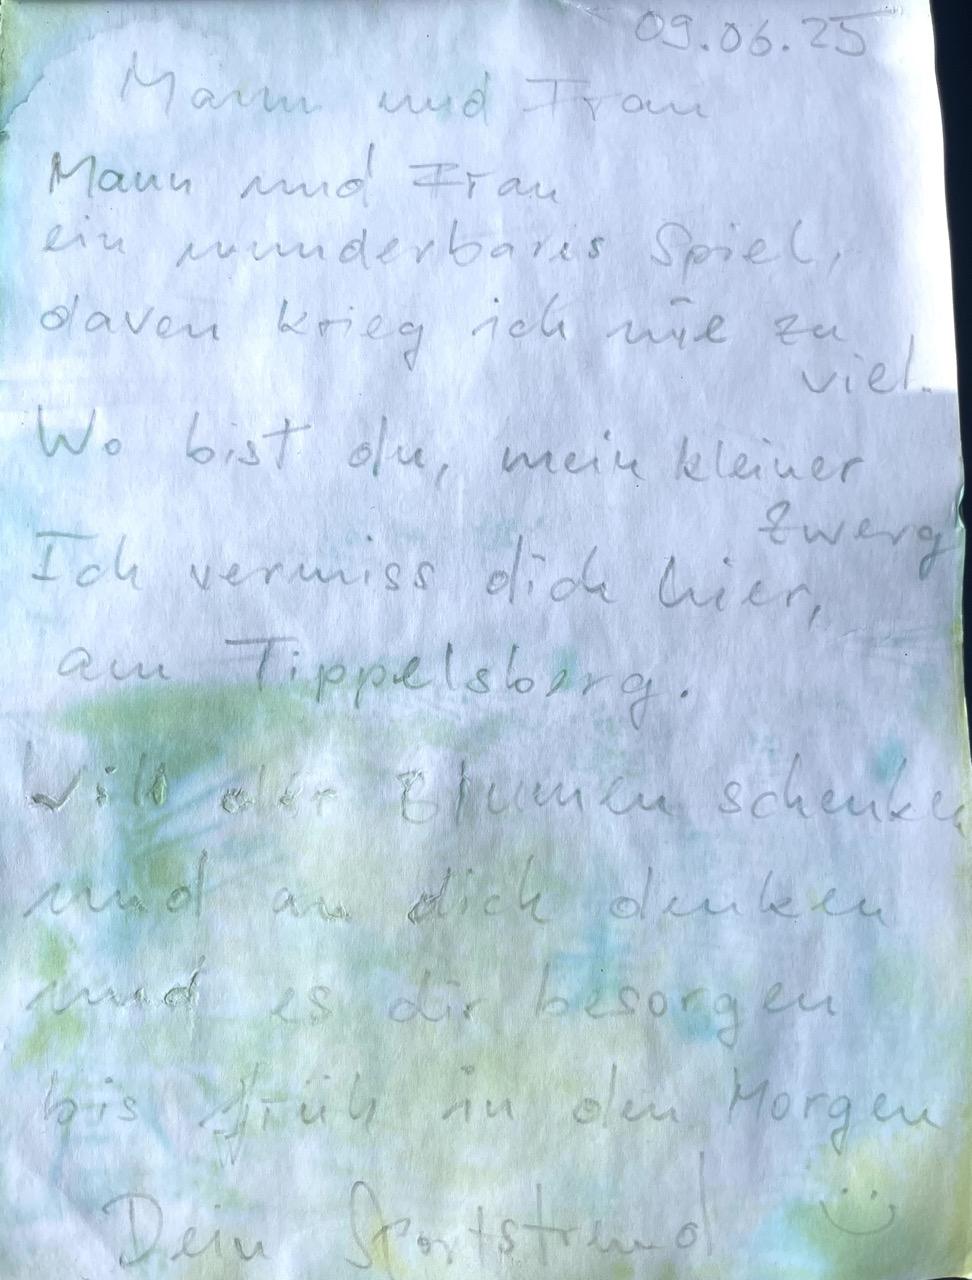 09.06.25
Mann und Frau
Mann und Frau
ein wunderbares Spiel,
davon krieg ich nie zu
viel.
Wo bist du, mein kleiner
Zwerg
Ich vermiss dich hier,
am Tippelsberg.
Will dir Blumen schenken
und an dich denken
und es dir besorgen
bis früh in den Morgen
Dein :)